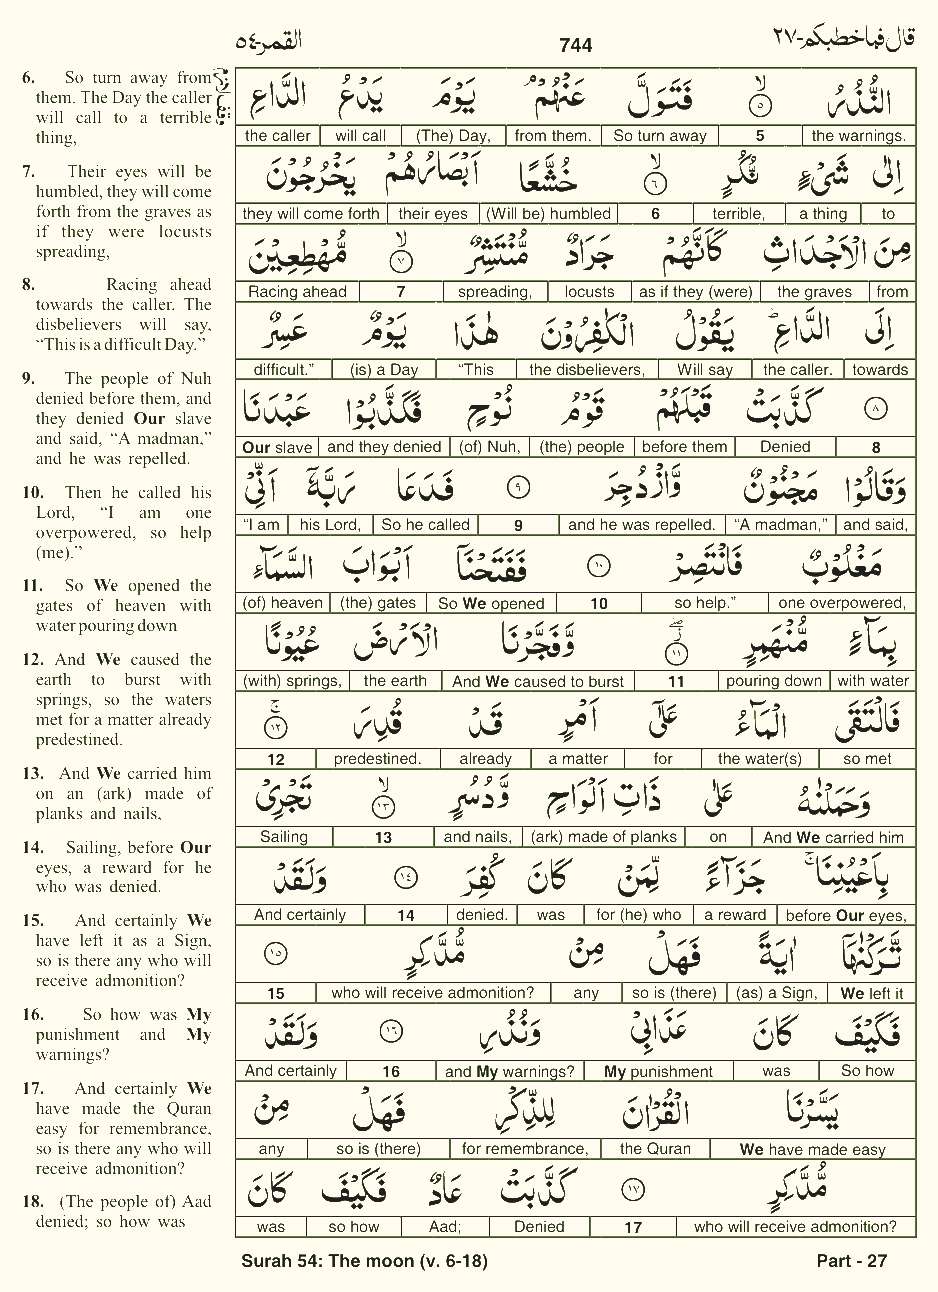 القمر-٥٤
744
قال فما خطبكم-٢٧
6. So turn away from
them. The Day the caller
will call to a terrible
thing,
7. Their eyes will be
humbled, they will come
forth from the graves as
if they were locusts
spreading,
8. Racing ahead
towards the caller. The
disbelievers will say,
“This is a difficult Day.”
9. The people of Nuh
denied before them, and
they denied Our slave
and said, “A madman,”
and he was repelled.
10. Then he called his
Lord, “I am one
overpowered, so help
(me).”
11. So We opened the
gates of heaven with
water pouring down
12. And We caused the
earth to burst with
springs, so the waters
met for a matter already
predestined.
13. And We carried him
on an (ark) made of
planks and nails,
14. Sailing, before Our
eyes, a reward for he
who was denied.
15. And certainly We
have left it as a Sign,
so is there any who will
receive admonition?
16. So how was My
punishment and My
warnings?
17. And certainly We
have made the Quran
easy for remembrance,
so is there any who will
receive admonition?
18. (The people of) Aad
denied; so how was
النُّذُرُ ۙ٥ فَتَوَلَّ عَنْهُمْ ۘ يَوْمَ يَدْعُ الدَّاعِ
the caller will call (The) Day, from them. So turn away 5 the warnings.
اِلٰى شَیْءٍ نُّكُرٍ ۙ٦ خُشَّعًا اَبْصَارُهُمْ يَخْرُجُوْنَ
they will come forth their eyes (Will be) humbled 6 terrible, a thing to
مِنَ الْاَجْدَاثِ كَاَنَّهُمْ جَرَادٌ مُّنْتَشِرٌ ۙ٧ مُّهْطِعِيْنَ
Racing ahead 7 spreading, locusts as if they (were) the graves from
اِلَى الدَّاعِ ؕ يَقُوْلُ الْكٰفِرُوْنَ هٰذَا يَوْمٌ عَسِرٌ
difficult.” (is) a Day “This the disbelievers, Will say the caller. towards
٨ كَذَّبَتْ قَبْلَهُمْ قَوْمُ نُوْحٍ فَكَذَّبُوْا عَبْدَنَا
Our slave and they denied (of) Nuh, (the) people before them Denied 8
وَقَالُوْا مَجْنُوْنٌ وَّازْدُجِرَ ٩ فَدَعَا رَبَّهٗۤ اَنِّیْ
“I am his Lord, So he called 9 and he was repelled. “A madman,” and said,
مَغْلُوْبٌ فَانْتَصِرْ ١٠ فَفَتَحْنَاۤ اَبْوَابَ السَّمَآءِ
(of) heaven (the) gates So We opened 10 so help.” one overpowered,
بِمَآءٍ مُّنْهَمِرٍ ١١ وَّفَجَّرْنَا الْاَرْضَ عُيُوْنًا
(with) springs, the earth And We caused to burst 11 pouring down with water
فَالْتَقَی الْمَآءُ عَلٰۤی اَمْرٍ قَدْ قُدِرَ ۚ١٢
12 predestined. already a matter for the water(s) so met
وَحَمَلْنٰهُ عَلٰی ذَاتِ اَلْوَاحٍ وَّدُسُرٍ ۙ١٣ تَجْرِیْ
Sailing 13 and nails, (ark) made of planks on And We carried him
بِاَعْيُنِنَا ۚ جَزَآءً لِّمَنْ كَانَ كُفِرَ ١٤ وَلَقَدْ
And certainly 14 denied. was for (he) who a reward before Our eyes,
تَّرَكْنٰهَاۤ اٰيَةً فَهَلْ مِنْ مُّدَّكِرٍ ١٥
15 who will receive admonition? any so is (there) (as) a Sign, We left it
فَكَيْفَ كَانَ عَذَابِیْ وَنُذُرِ ١٦ وَلَقَدْ
And certainly 16 and My warnings? My punishment was So how
يَسَّرْنَا الْقُرْاٰنَ لِلذِّكْرِ فَهَلْ مِنْ
any so is (there) for remembrance, the Quran We have made easy
مُّدَّكِرٍ ١٧ كَذَّبَتْ عَادٌ فَكَيْفَ كَانَ
was so how Aad; Denied 17 who will receive admonition?
Surah 54: The moon (v. 6-18)
Part - 27